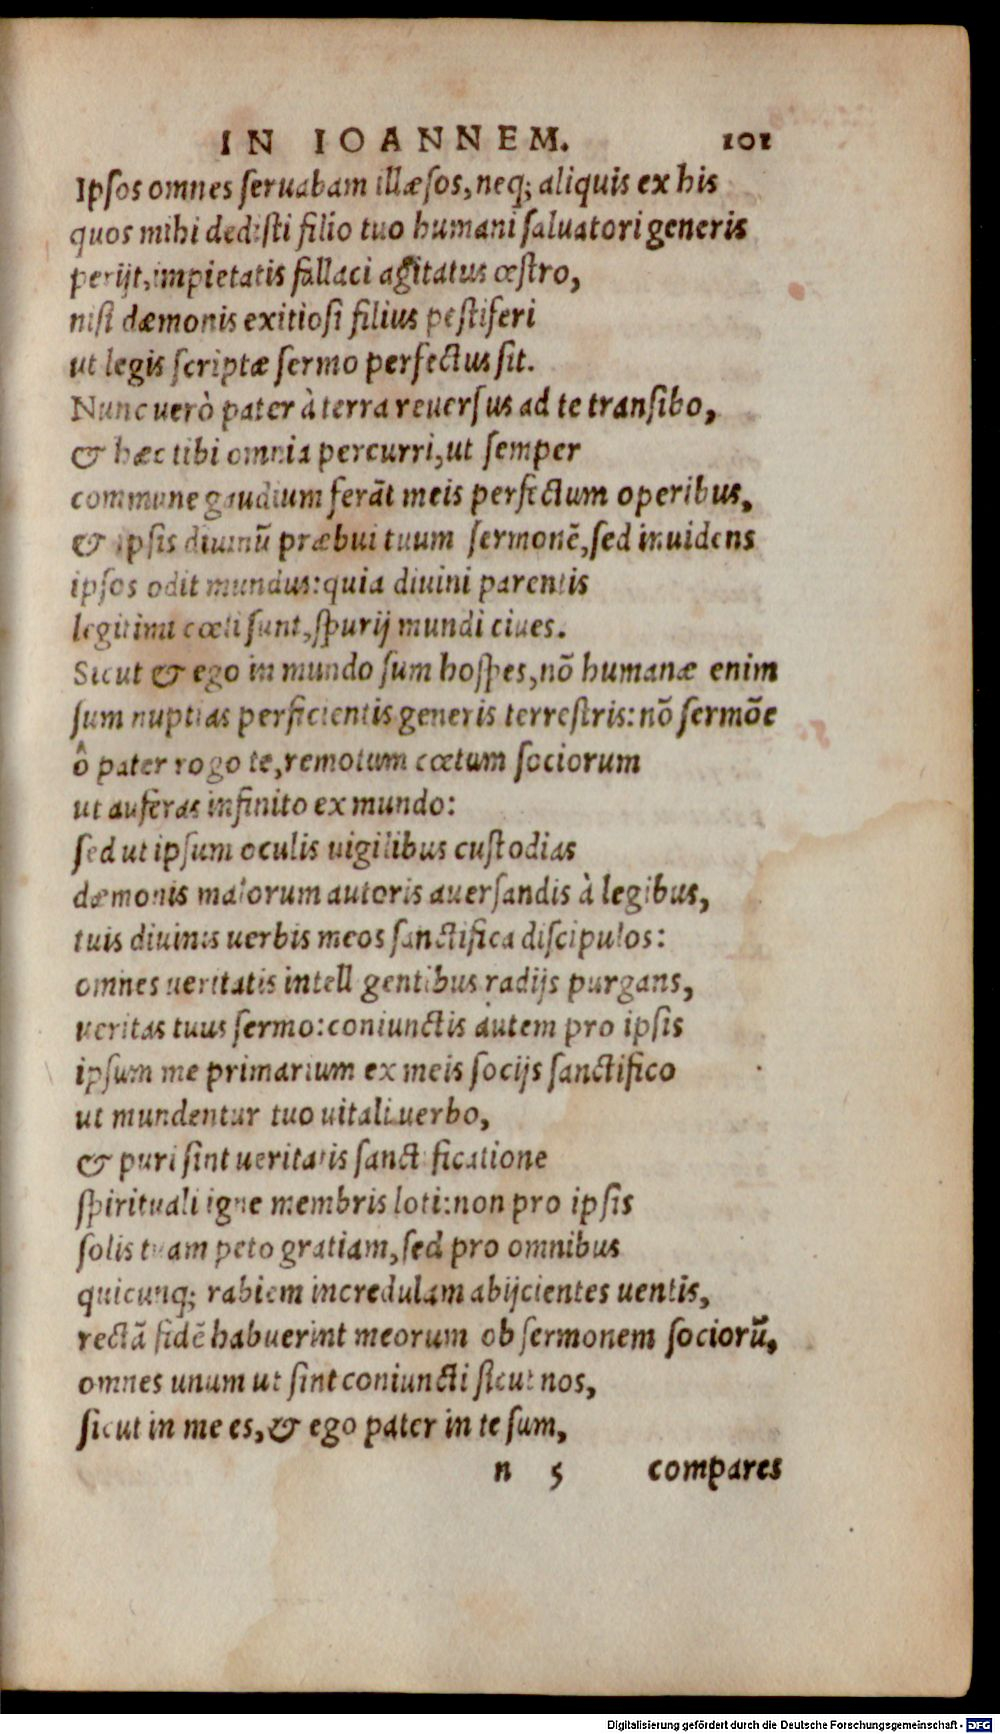 IN IOANNEM. 101
Ipsos omnes seruabam illæsos, neq; aliquis ex his
quos mihi dedisti filio tuo humani saluatori generis
perijt, impietatis fallaci agitatus œstro,
nisi dæmonis exitiosi filius pestiferi
ut legis scriptæ sermo perfectus sit.
Nunc uerò pater à terra reuersus ad te transibo,
& hæc tibi omnia percurri, ut semper
commune gaudium ferāt meis perfectum operibus,
& ipsis diuinū præbui tuum sermonē, sed inuidens
ipsos odit mundus: quia diuini parentis
legitimi cœli sunt, spurij mundi ciues.
Sicut & ego in mundo sum hospes, nō humanæ enim
sum nuptias perficientis generis terrestris: nō sermōe
ô pater rogo te, remotum cœtum sociorum
ut auferas infinito ex mundo:
sed ut ipsum oculis uigilibus custodias
dæmonis malorum autoris auersandis à legibus,
tuis diuinis uerbis meos sanctifica discipulos:
omnes ueritatis intelligentibus radijs purgans,
ueritas tuus sermo: coniunctis autem pro ipsis
ipsum me primarium ex meis socijs sanctifico
ut mundentur tuo uitali uerbo,
& puri sint ueritatis sanctificatione
spirituali igne membris loti: non pro ipsis
solis tuam peto gratiam, sed pro omnibus
quicunq; rabiem incredulam abijcientes uentis,
rectā fidē habuerint meorum ob sermonem sociorū,
omnes unum ut sint coniuncti sicut nos,
sicut in me es, & ego pater in te sum,
n 5 compares
Digitalisierung gefördert durch die Deutsche Forschungsgemeinschaft - DFG